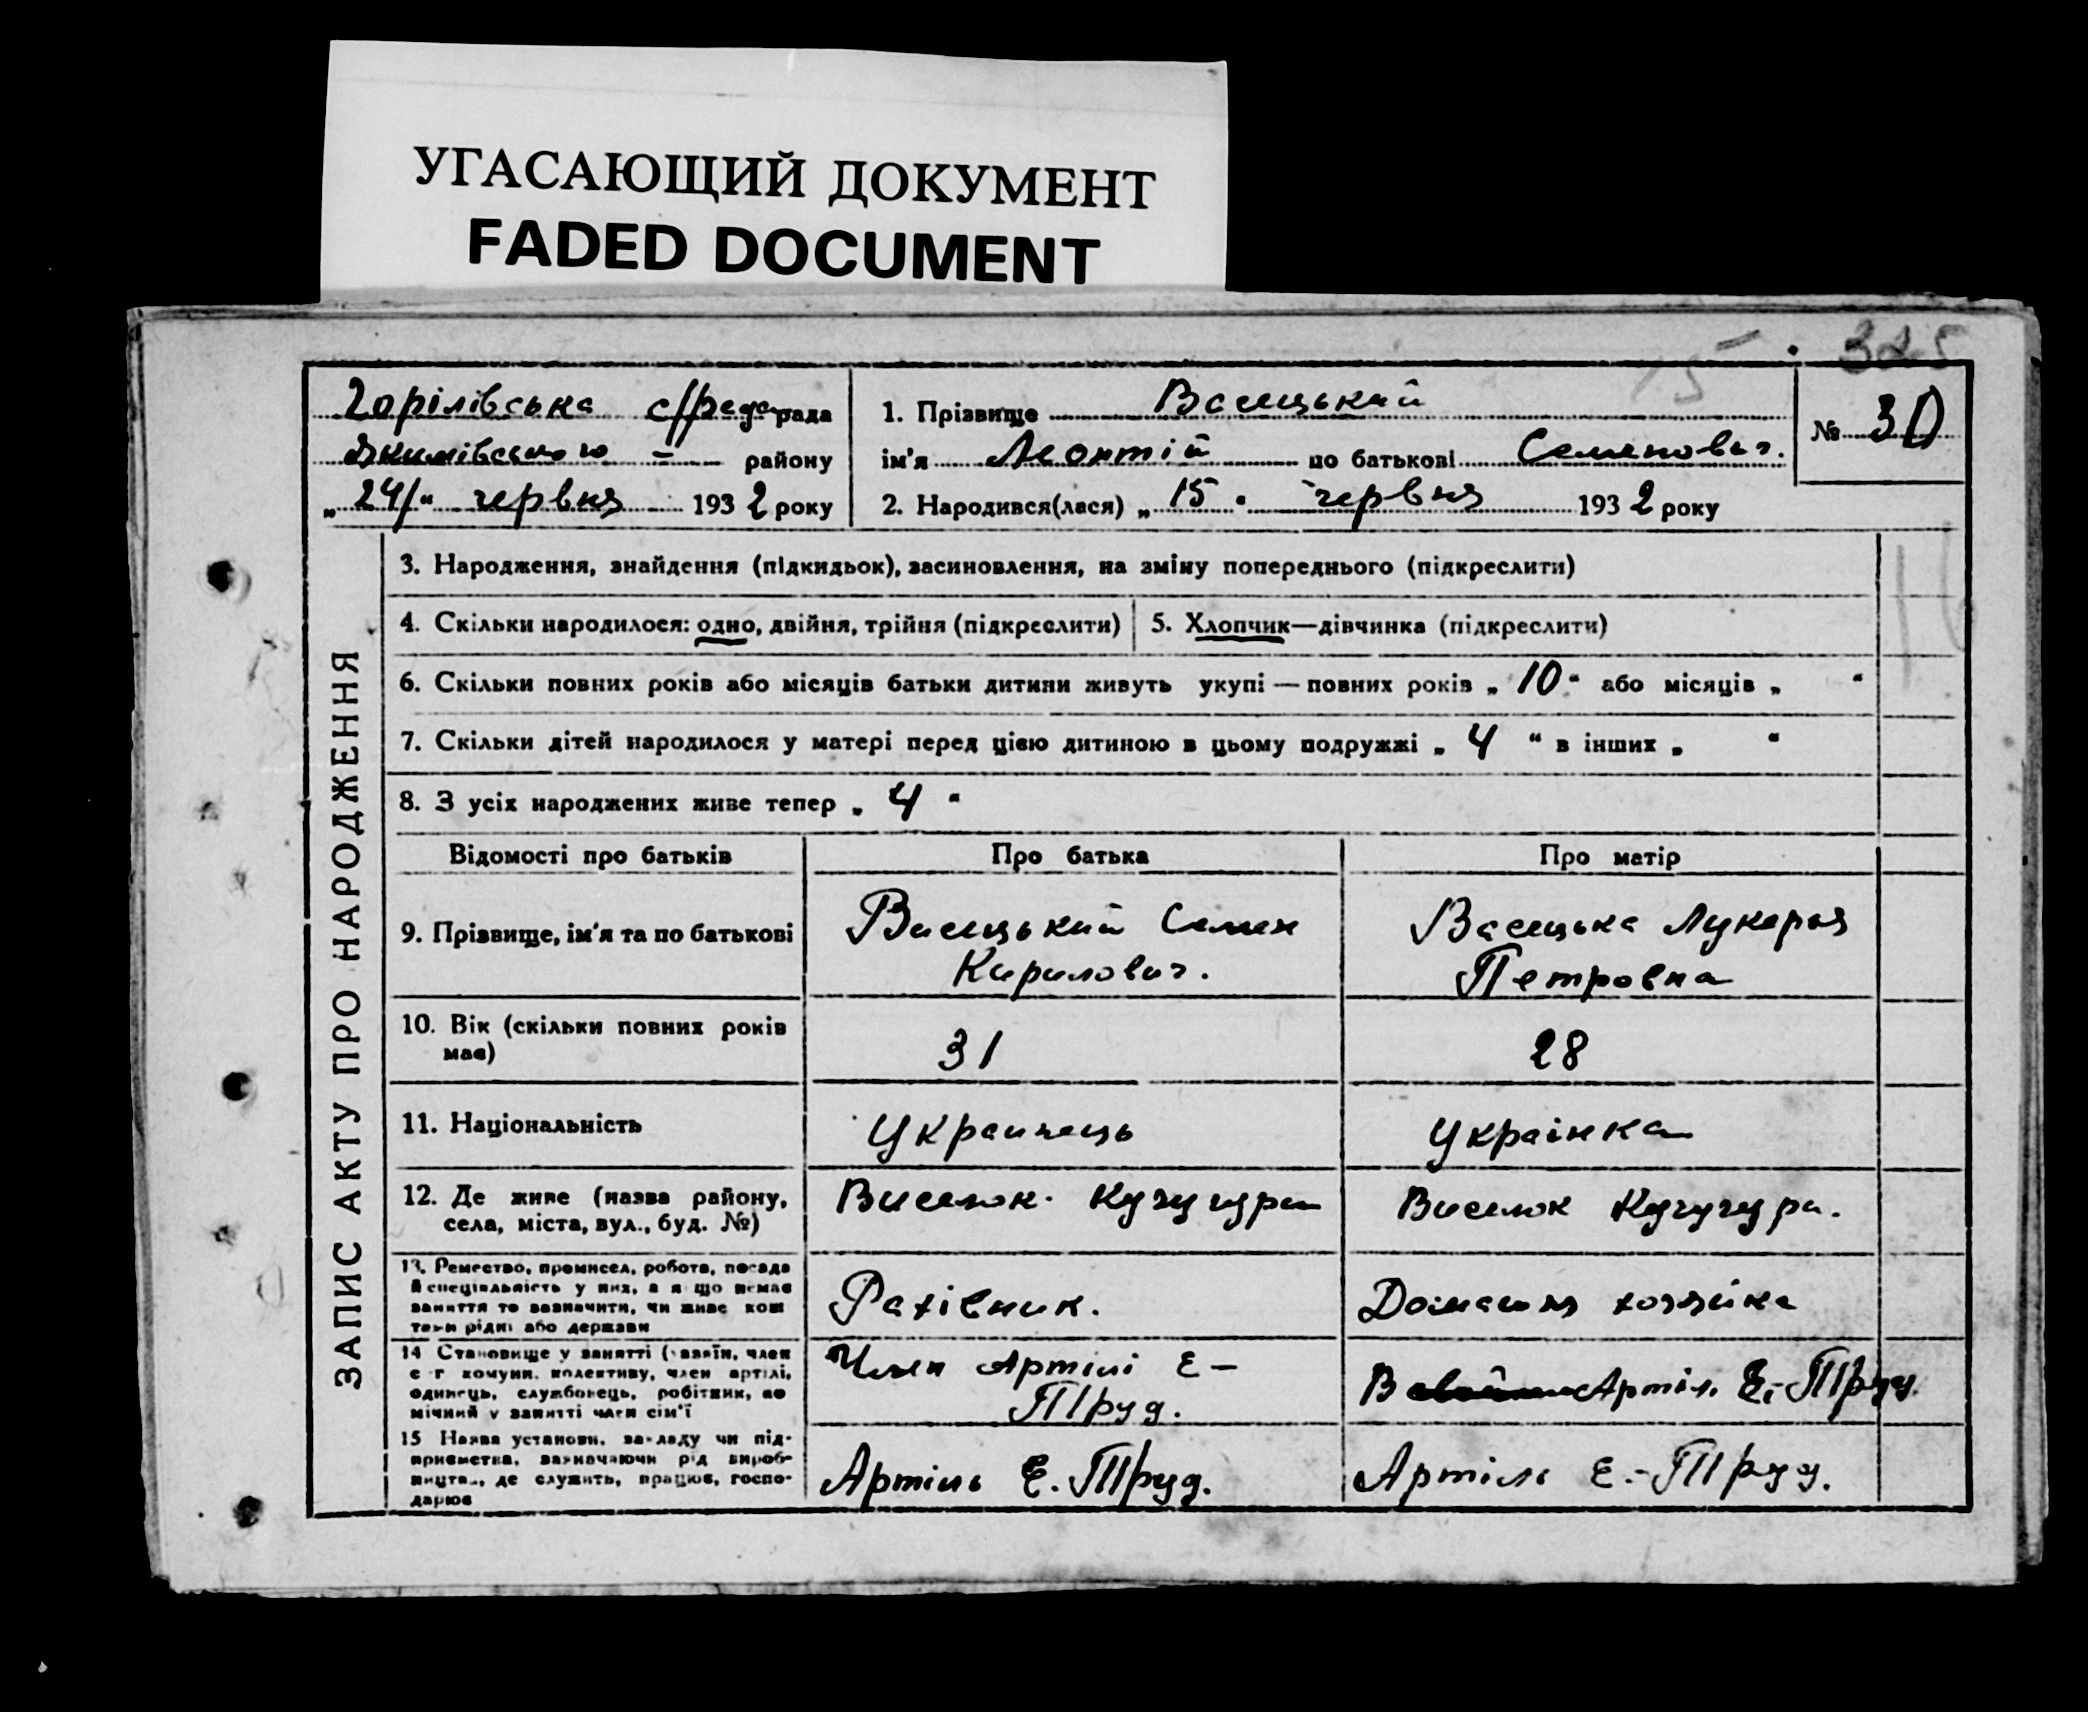 УГАСАЮЩИЙ ДОКУМЕНТ
FADED DOCUMENT
325
15
Горілівська с/рада рада
району
„ 24/“ червня 1932 року
1. Прізвище Васецький
ім'я Леонтій по батькові Семенович.
2. Народився(лася) „ 15 “ червня 1932 року
№ 30
ЗАПИС АКТУ ПРО НАРОДЖЕННЯ
3. Народження, знайдення (підкидьок), засиновлення, на зміну попереднього (підкреслити)
4. Скільки народилося: одно, двійня, трійня (підкреслити)
5. Хлопчик—дівчинка (підкреслити)
6. Скільки повних років або місяців батьки дитини живуть укупі — повних років „ 10 “ або місяців „ “
7. Скільки дітей народилося у матері перед цією дитиною в цьому подружжі „ 4 “ в інших „ “
8. З усіх народжених живе тепер „ 4 “
Відомості про батьків
Про батька
Про матір
9. Прізвище, ім'я та по батькові
Васецький Семен
Кирилович.
Васецька Лукерья
Петровна
10. Вік (скільки повних років
має)
31
28
11. Національність
Украинець
Українка
12. Де живе (назва району,
села, міста, вул., буд. №)
Виселок Кучугури
Виселок Кучугури.
13. Ремество, промисел, робота, посада
й спеціяльність у них, а якщо немає
заняття то зазначити, чи живе кош
тами рідні або держави
Рахівник.
Домашня хозяйка
14 Становище у занятті (хазяїн, член
с-г комуни, колективу, член артілі,
одинець, службовець, робітник, по
мічний у занятті член сім'ї
Член Артілі Е-
Труд.
В Артіл. Е.-Труд.
15 Назва установи, закладу чи під-
приємства, зазначаючи рід вироб-
ництва, де служить, працює, госпо-
дарює
Артіль Е. Труд.
Артіль Е.-Труд.